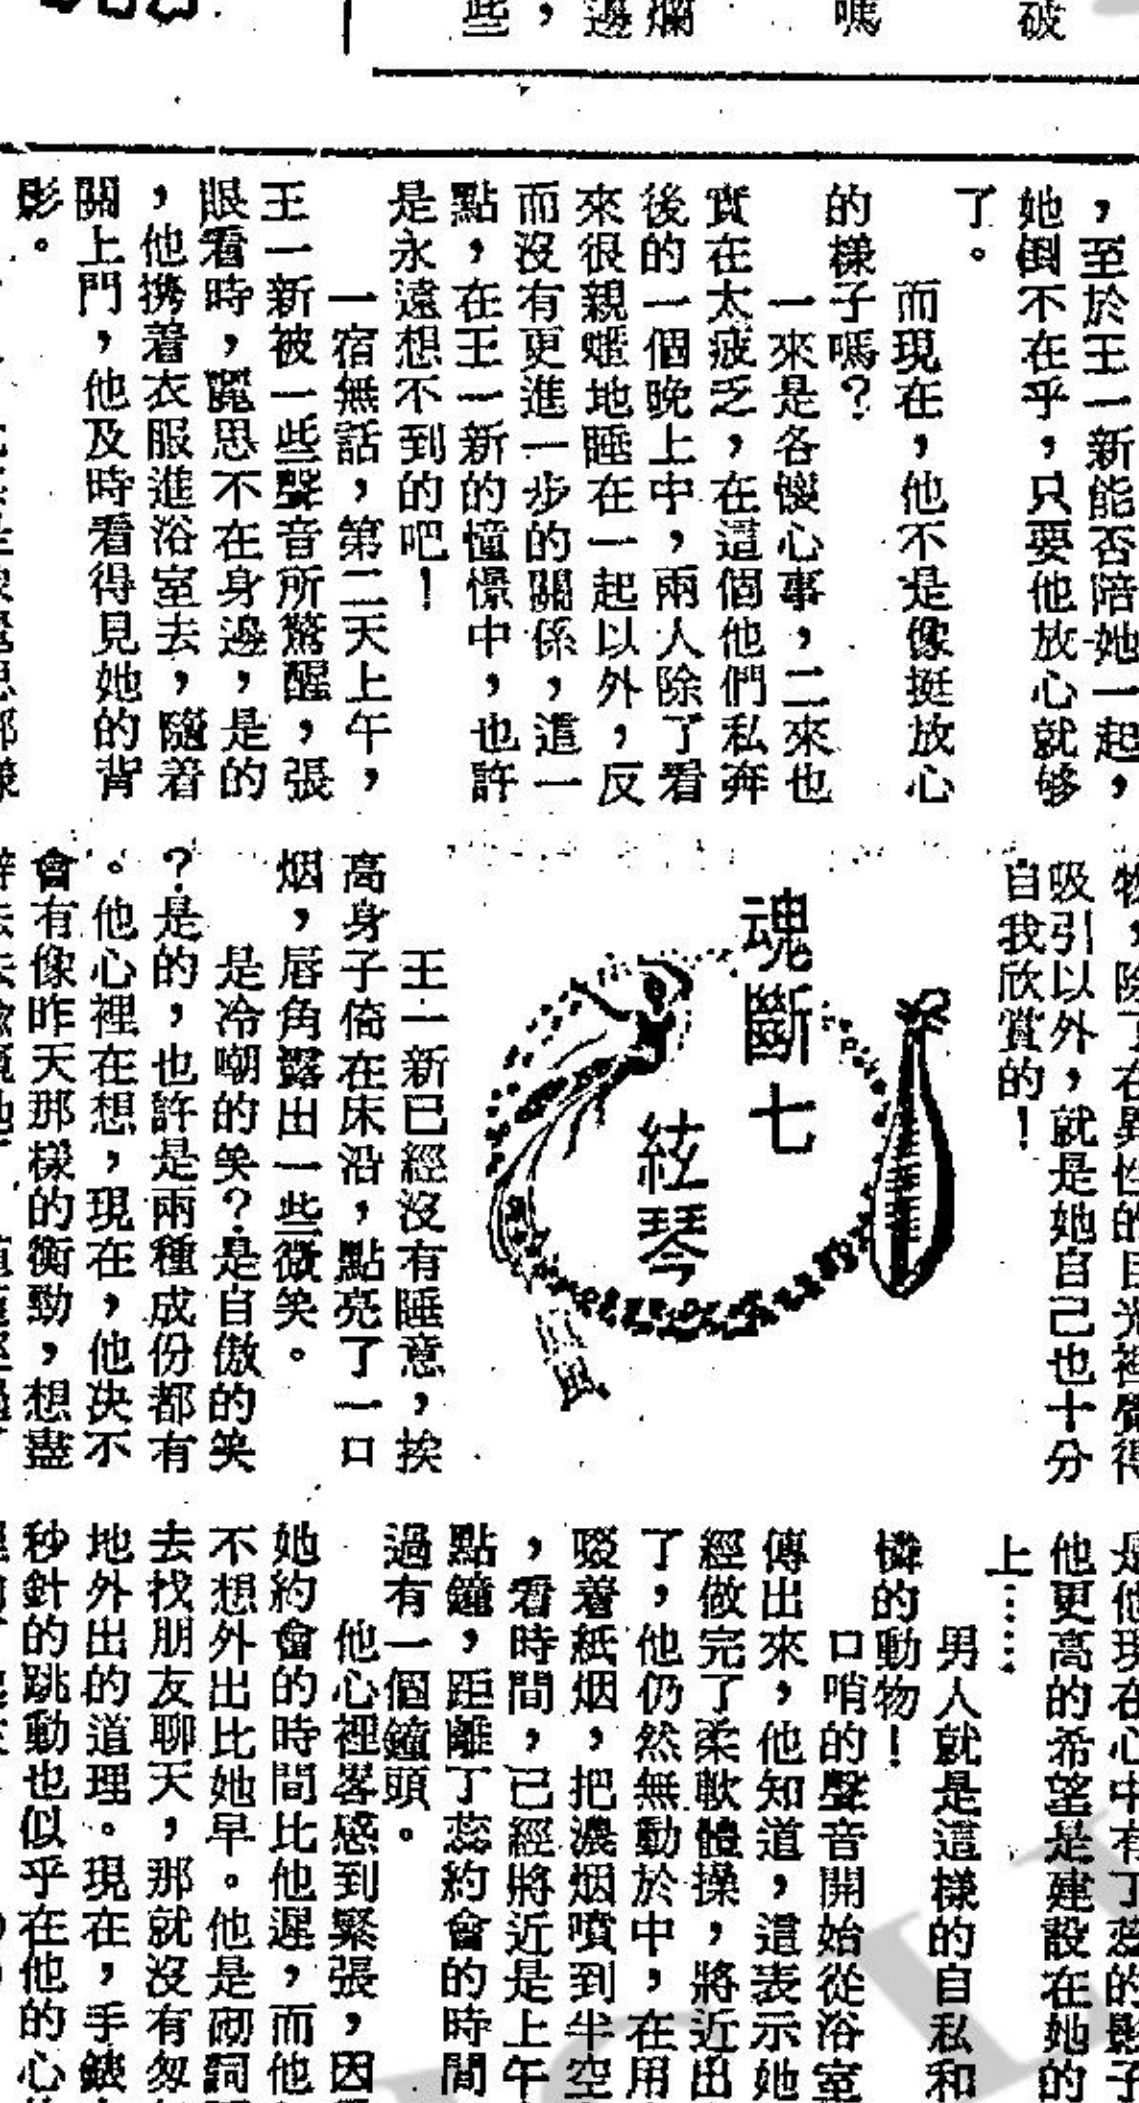 破
嗎
爛
邊
，
些
，至於王一新能否陪她一起，
她倒不在乎，只要他放心就够
了。
而現在，他不是像挺放心
的樣子嗎？
一來是各懷心事，二來也
實在太疲乏，在這個他們私奔
後的一個晚上中，兩人除了看
來很親暱地睡在一起以外，反
而沒有更進一步的關係，這一
點，在王一新的憧憬中，也許
是永遠想不到的吧！
一宿無話，第二天上午，
王一新被一些聲音所驚醒，張
眼看時，麗思不在身邊，是的
，他携着衣服進浴室去，隨着
關上門，他及時看得見她的背
影。
物，除了在異性的目光裡覺得
吸引以外，就是她自己也十分
自我欣賞的！
魂斷七
絃琴
王一新已經沒有睡意，挨
高身子倚在床沿，點亮了一口
烟，唇角露出一些微笑。
是冷嘲的笑？是自傲的笑
？是的，也許是兩種成份都有
。他心裡在想，現在，他決不
會有像昨天那樣的衝勁，想盡
是他現在心中有了蕊的影子
他更高的希望是建設在她的
上……
男人就是這樣的自私和
憐的動物！
口哨的聲音開始從浴室
傳出來，他知道，這表示她
經做完了柔軟體操，將近出
了，他仍然無動於中，在用
吸着紙烟，把濃烟噴到半空
，看時間，已經將近是上午
點鐘，距離丁蕊約會的時間
過有一個鐘頭。
他心裡畧感到緊張，因
她約會的時間比他遲，而他
不想外出比她早。他是砌詞
去找朋友聊天，那就沒有匆
地外出的道理。現在，手錶
秒針的跳動也似乎在他的心